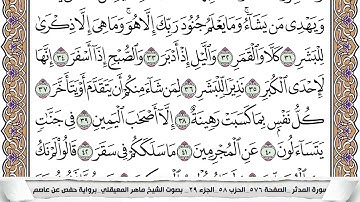 وَيَهْدِى مَن يَشَآءُ ۚ وَمَا يَعْلَمُ جُنُودَ رَبِّكَ إِلَّا هُوَ ۚ وَمَا هِىَ إِلَّا ذِكْرَىٰ
لِلْبَشَرِ ٣١ كَلَّا وَٱلْقَمَرِ ٣٢ وَٱلَّيْلِ إِذْ أَدْبَرَ ٣٣ وَٱلصُّبْحِ إِذَآ أَسْفَرَ ٣٤ إِنَّهَا
لَإِحْدَى ٱلْكُبَرِ ٣٥ نَذِيرًا لِّلْبَشَرِ ٣٦ لِمَن شَآءَ مِنكُمْ أَن يَتَقَدَّمَ أَوْ يَتَأَخَّرَ ٣٧
كُلُّ نَفْسٍۭ بِمَا كَسَبَتْ رَهِينَةٌ ٣٨ إِلَّآ أَصْحَٰبَ ٱلْيَمِينِ ٣٩ فِى جَنَّٰتٍ
يَتَسَآءَلُونَ ٤٠ عَنِ ٱلْمُجْرِمِينَ ٤١ مَا سَلَكَكُمْ فِى سَقَرَ ٤٢ قَالُوا۟ لَمْ نَكُ
سورة المدثر _ الصفحة ٥٧٦ _ الحزب ٥٨ _ الجزء ٢٩ _ بصوت الشيخ ماهر المعيقلي _ برواية حفص عن عاصم